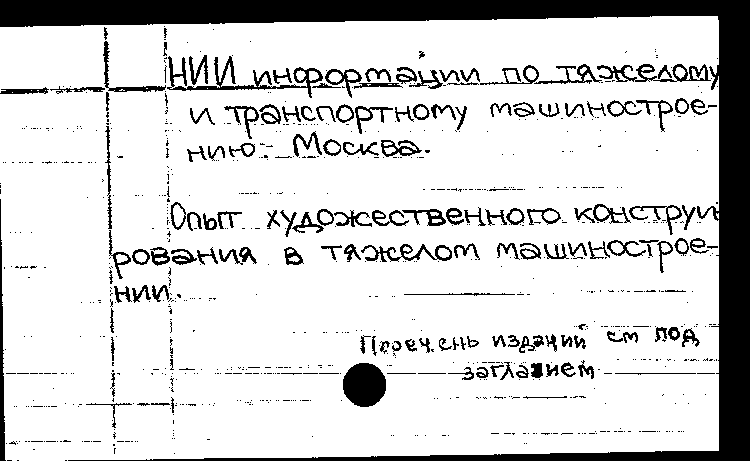 НИИ информации по тяжелому
и транспортному машиностроe-
нию. Москва.
Опыт художественного конструи
рования в тяжелом машиностроe-
нии.
Перечень изданий см под
заглавием